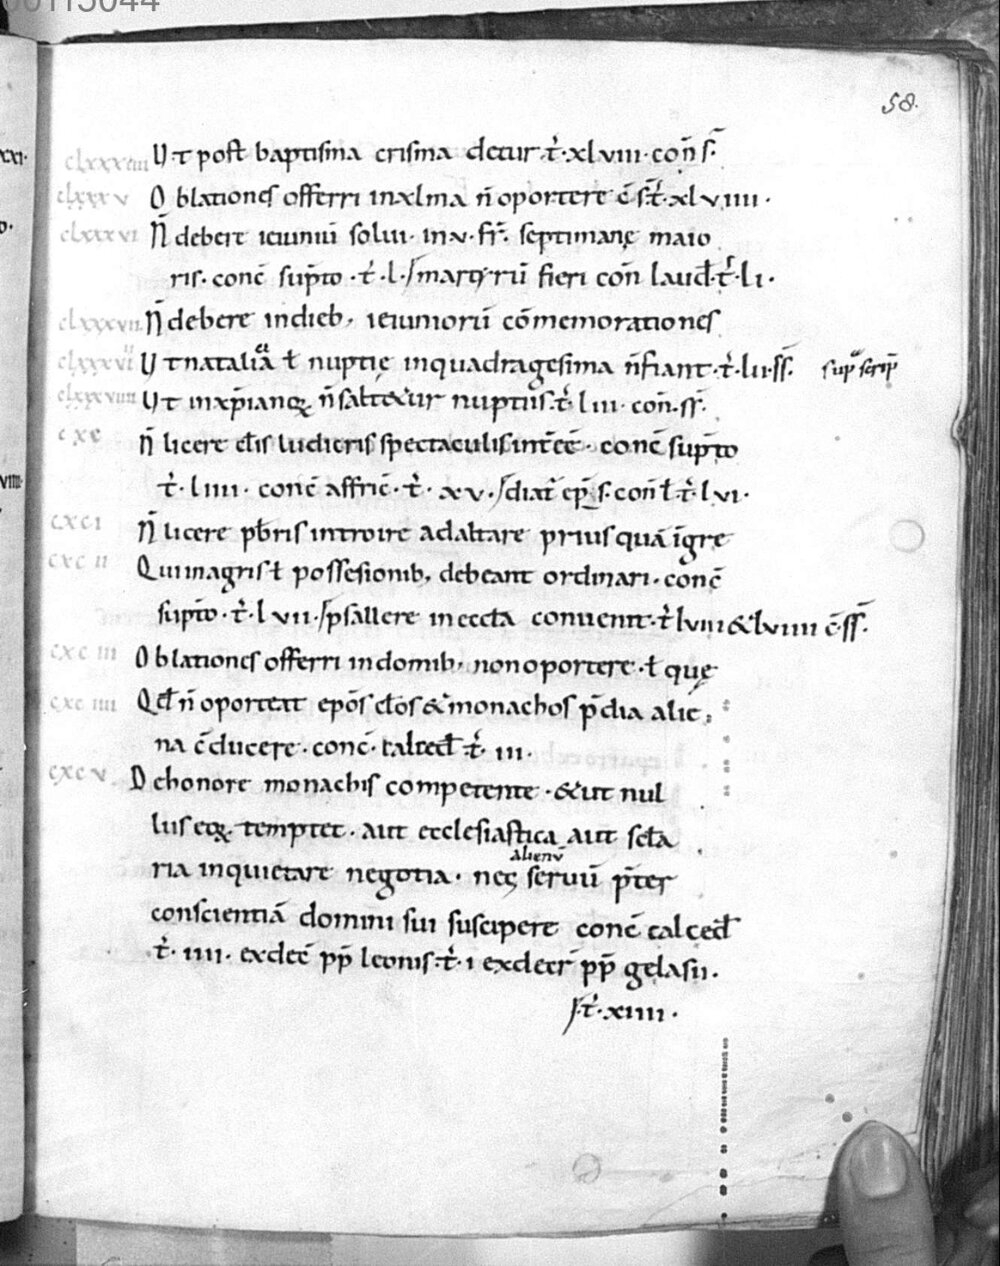 58.
clxxxiiii Ut post baptisma crisma detur. t̄. xlviii. con̄ s̄.
clxxxv Oblationes offerri in xlma n̄ oportere c̄ s̄. t̄. xlviiii.
clxxxvi N̄ debere ieiuniū solui. in v. fr̄. septimanę maio
ris. conc̄ sup̄to. t̄. l. / martyrū fieri con̄ laud̄. t̄. li.
clxxxvii N̄ debere in dieb; ieiuniorū cōmemorationes
clxxxviii Ut natalia ł nuptię in quadragesima n̄ fiant. t̄. lii. s̄s̄. sup̄ scrip̄
clxxxviiii Ut in xp̄ianoꝝ n̄ saltetur nuptiis. t̄. liii. con̄. s̄s̄.
cxc N̄ licere cl̄is ludicris spectaculis int̄eē. conc̄ sup̄to
t̄. liiii. conc̄ affric̄. t̄. xv.
cxci N̄ licere pb̄ris introire ad altare prius quā īgre
cxcii Qui in agris ł possesionib; debeant ordinari. conc̄
sup̄to. t̄. lvii. / psallere in eccl̄a conuenit. t̄ lviii & lviiii c̄. s̄s̄.
cxciii Oblationes offerri in domib; non oportere. ł que
cxciiii Qd̄ n̄ oporteat ep̄os cl̄os & monachos p̄dia alie
na c̄ducere. conc̄. calced̄ t̄. iii.
cxcv De honore monachis competente. & ut nul
lus eoꝝ temptet. aut ecclesiastica aut sc̄la
alienū
ria inquietare negotia. neq; seruū p̄ter
conscientiā domini sui suscipere conc̄ calced̄
t̄. iiii. ex dec̄ pp̄ leonis. t̄. i ex decr̄ pp̄ gelasii.
/ t̄. xiiii.